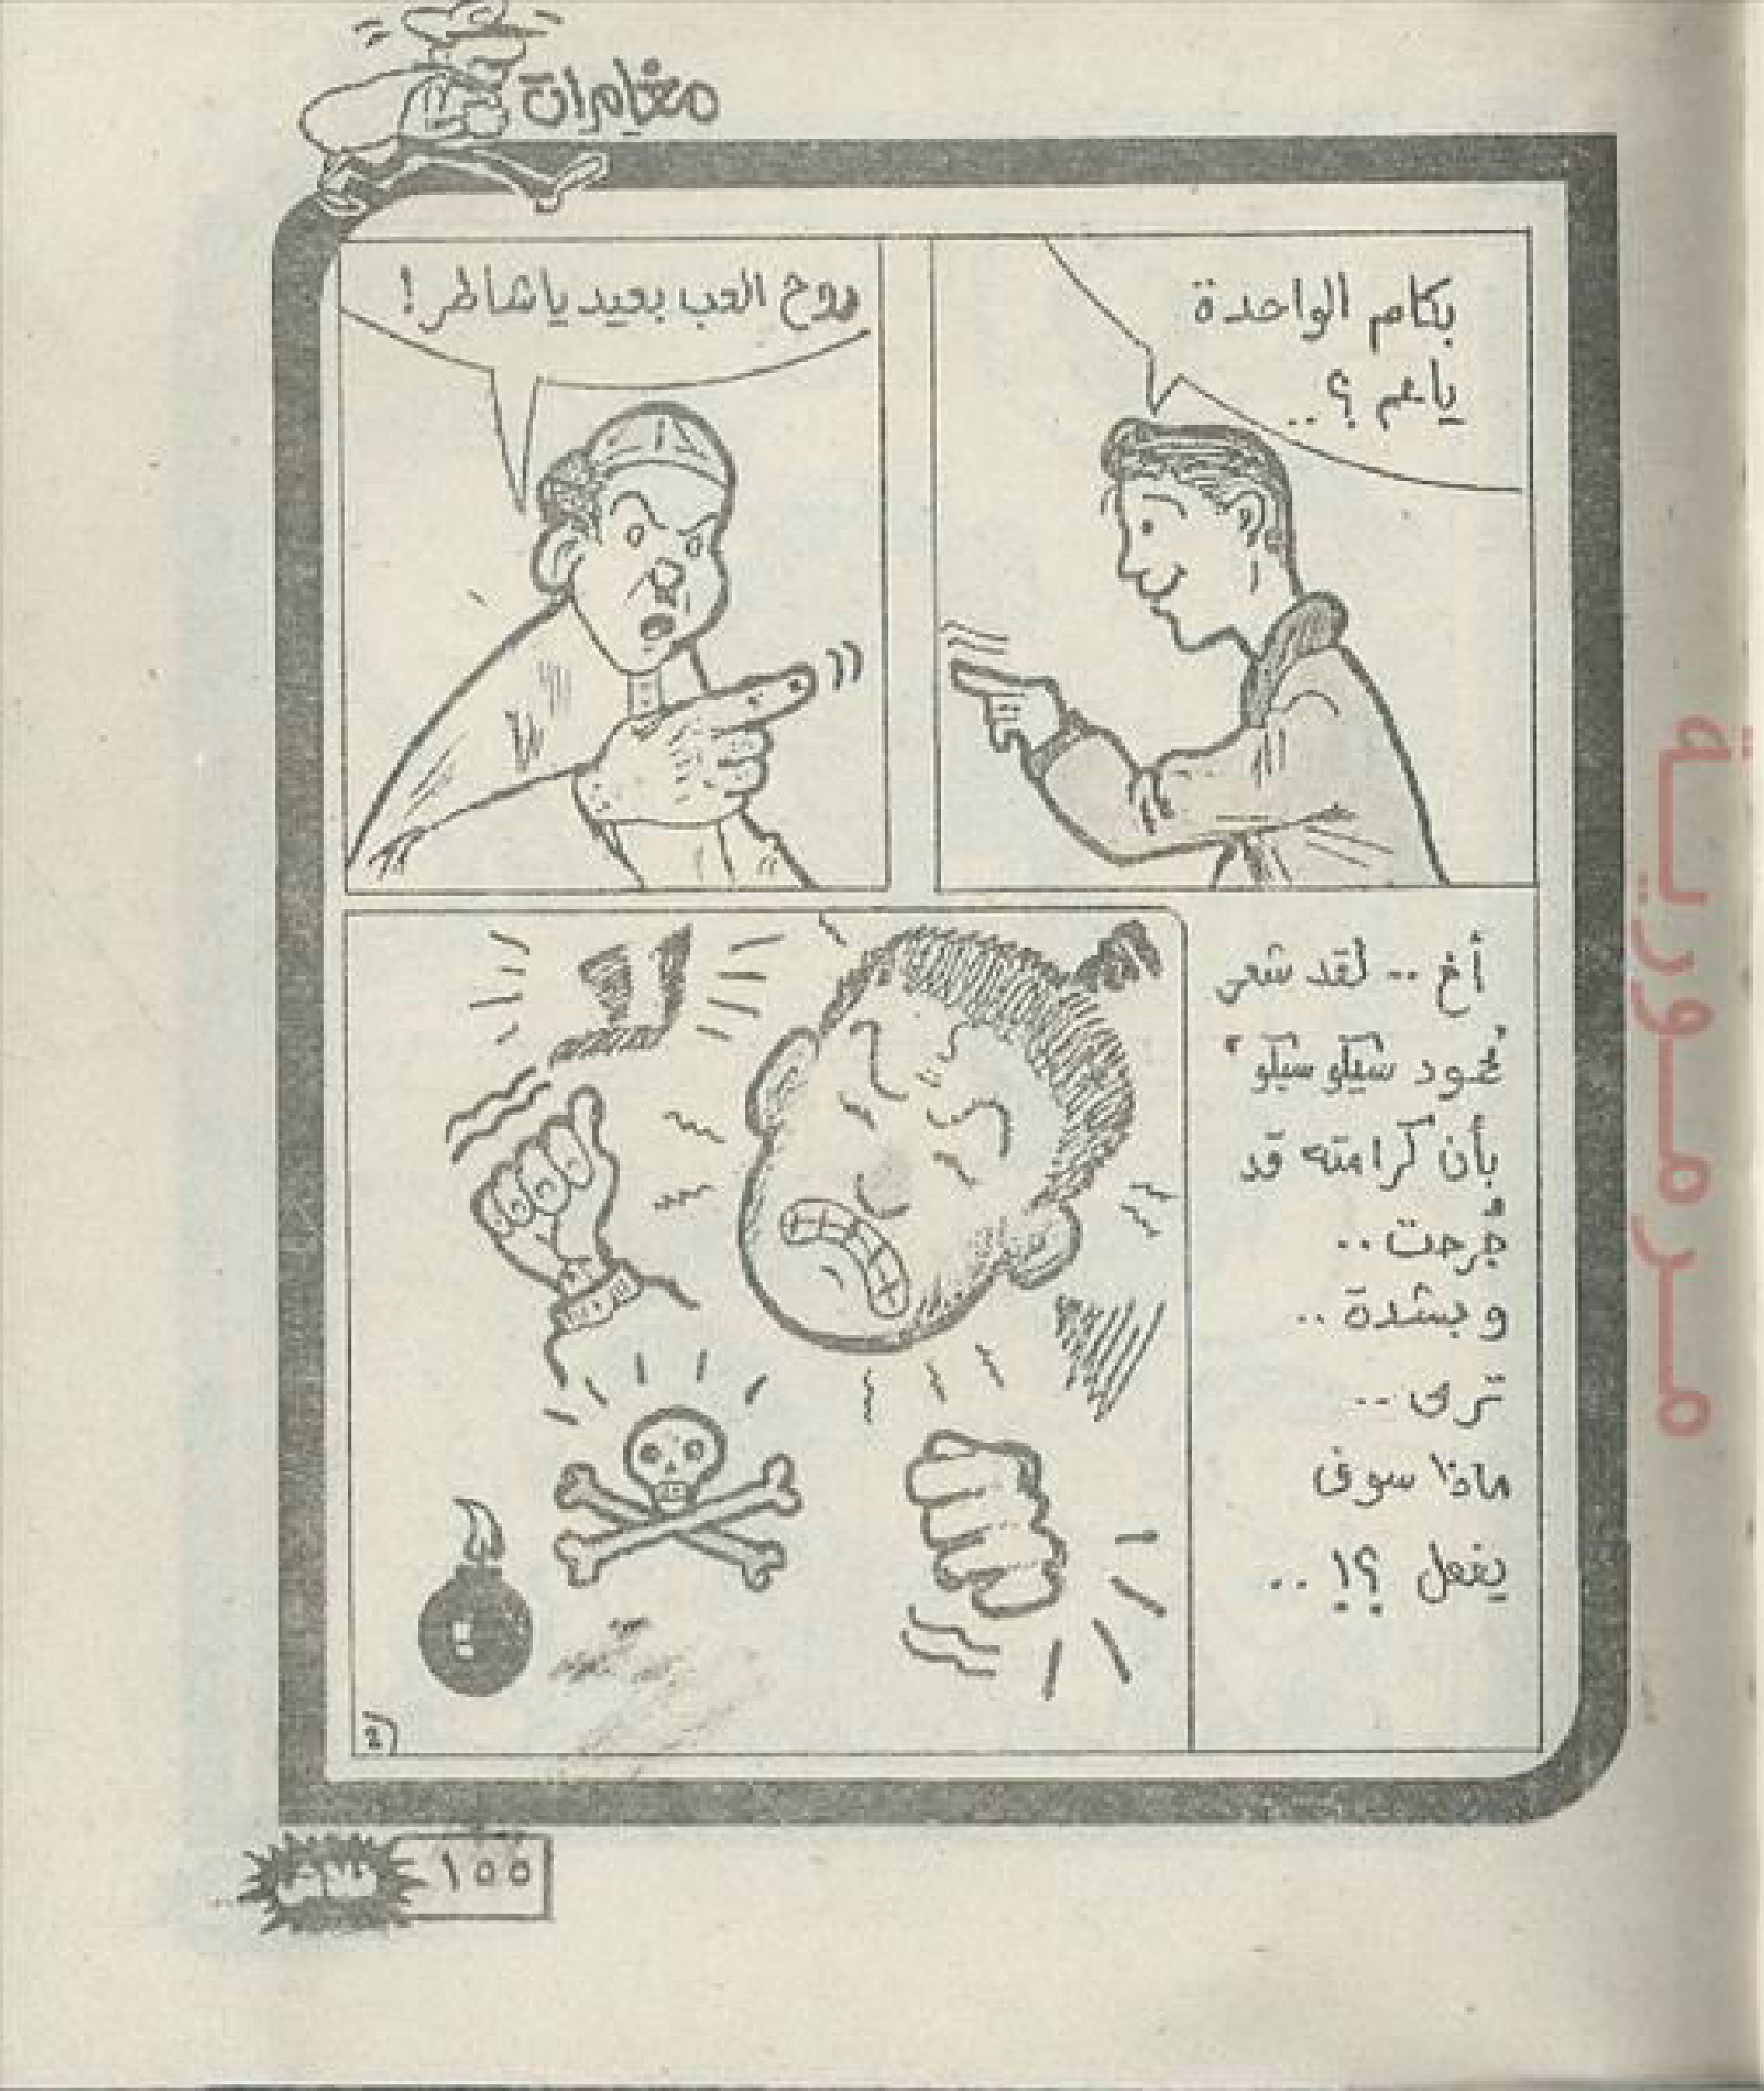 مغامرات
بكام الواحدة
ياعم ؟..
روح العب بعيد ياشاطر !
أخ .. لقد شعر
"محمود سيكو سيكو"
بأن كرامته قد
جُرحت ..
وبشدة ..
ترى ..
ماذا سوف
يفعل ؟! ..
١٥٥
مـرمـوريـة